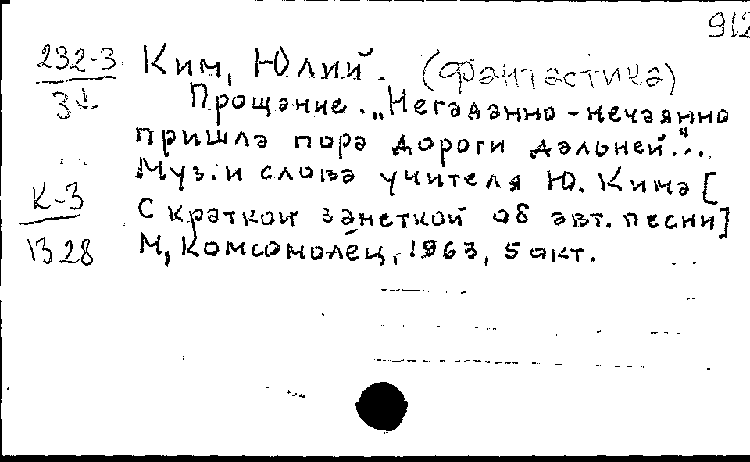 912
232-3 Ким, Юлий. (фантастика)
3↓ Прощание. „Негаданно - нечаянно
пришла пора дороги дальней"...
Муз. и слова учителя Ю. Кима [
К-3 С краткой заметкой об авт. песни]
1328 М, Комсомолец, 1963, 5 окт.